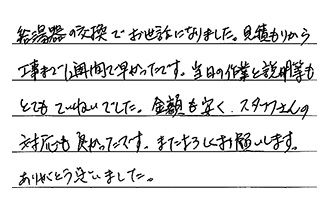 給湯器の交換でお世話になりました。見積もりから
工事まで1週間で早かったです。当日の作業と説明等も
とても ていねいでした。金額も安く、スタッフさんの
対応も良かったです。またよろしくお願いします。
ありがとう ございました。